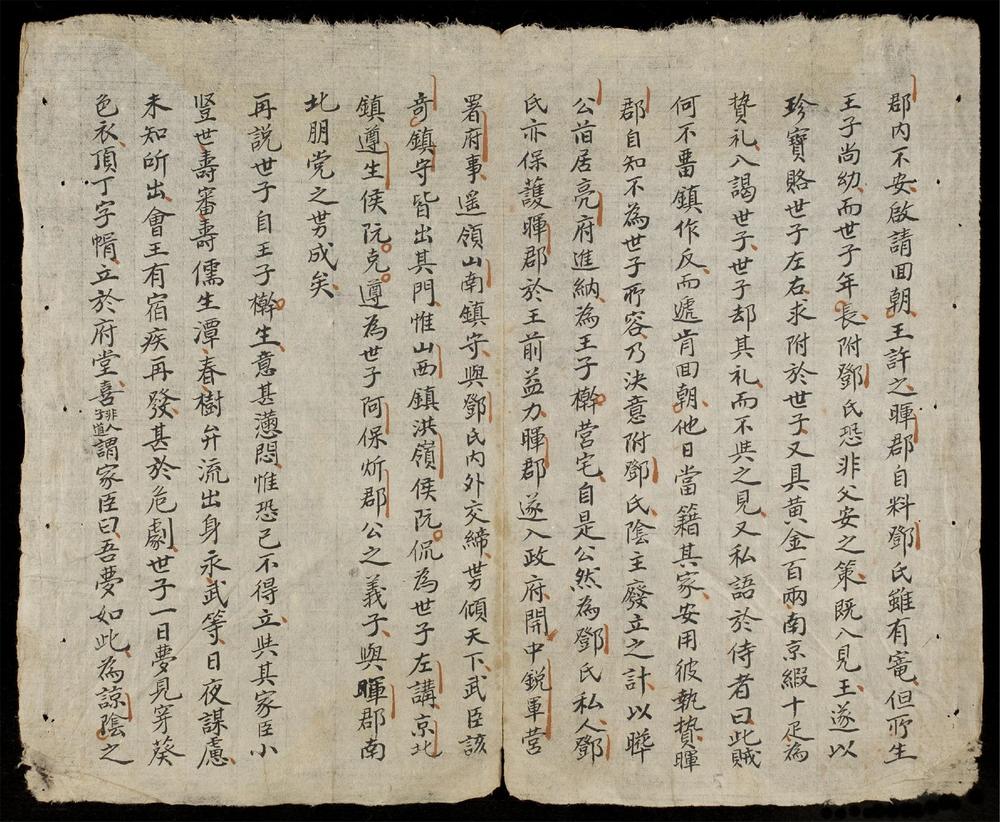 郡内不安啟請回朝王許之暉郡自料鄧氏雖有寵但所生
王子尚幼而世子年長附鄧氏恐非父安之策既入見王遂以
珍寶賂世子左右求附於世子又具黃金百兩南京緞十疋為
贄礼入謁世子世子却其礼而不與之見又私語於侍者曰此賊
何不番鎮作反而遽肯回朝他日當籍其家安用彼執贄暉
郡自知不為世子所容乃決意附鄧氏陰主廢立之計以
公舊居亮府進納為王子檊營宅自是公然為鄧氏私人鄧
氏亦保護暉郡於王前益力暉郡遂入政府開中銳軍營
署府事遥領山南鎮守與鄧氏内外交締势傾天下武臣該
奇鎮守皆出其門惟山西鎮洪嶺侯阮侃為世子左講京北
鎮遵生侯阮克遵為世子阿保炘郡公之義子與暉郡南
北朋党之势成矣
再説世子自王子檊生意甚懣悶惟恐己不得立與其家臣小
豎世壽審壽儒生潭春樹弁流出身永武等日夜謀慮
未知所出會王有宿疾再發甚於危劇世子一日夢見穿葵
色衣頂丁字幘立於府堂喜非人子道謂家臣曰吾夢如此為諒陰之